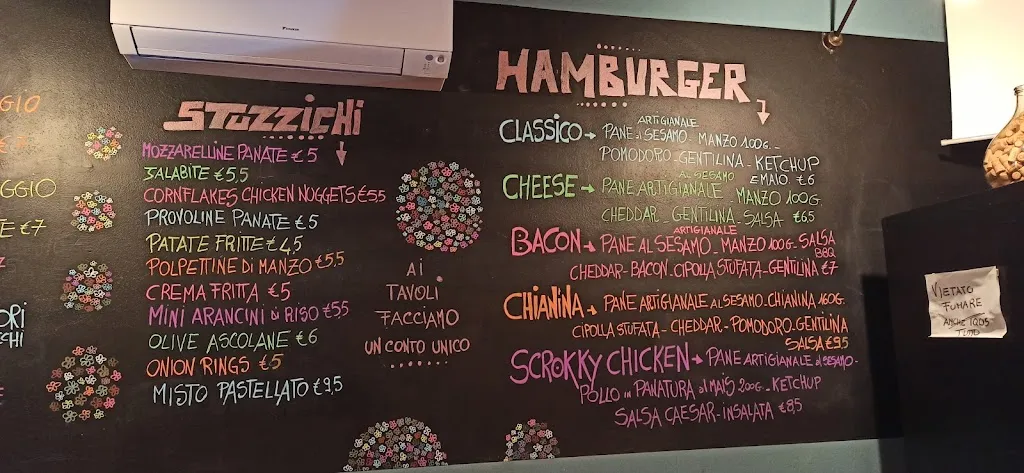 GGIO
AGGIO
TE €7
ORI
SCHI
STUZZICHI
MOZZARELLINE PANATE € 5
JALABITE € 5,5
CORNFLAKES CHICKEN NUGGETS €5,5
PROVOLINE PANATE € 5
PATATE FRITTE € 4,5
POLPETTINE DI MANZO € 5,5
CREMA FRITTA € 5
MINI ARANCINI di RISO €5,5
OLIVE ASCOLANE €6
ONION RINGS €5
MISTO PASTELLATO € 9,5
AI
TAVOLI
FACCIAMO
UN CONTO UNICO
HAMBURGER
ARTIGIANALE
CLASSICO → PANE al SESAMO - MANZO 100g. -
POMODORO - GENTILINA - KETCHUP
E MAIO € 6
AL SESAMO
CHEESE → PANE ARTIGIANALE - MANZO 100g.
CHEDDAR - GENTILINA - SALSA €6,5
ARTIGIANALE
BACON → PANE AL SESAMO - MANZO 100g - SALSA
BBQ
CHEDDAR - BACON - CIPOLLA STUFATA - GENTILINA €7
CHIANINA → PANE ARTIGIANALE AL SESAMO - CHIANINA 160g.
CIPOLLA STUFATA - CHEDDAR - POMODORO - GENTILINA
SALSA € 9,5
SCROKKY CHICKEN → PANE ARTIGIANALE al SESAMO -
POLLO in PANATURA di MAIS 200g - KETCHUP
SALSA CAESAR - INSALATA €8,5
VIETATO
FUMARE
ANCHE IQOS
DAIKIN